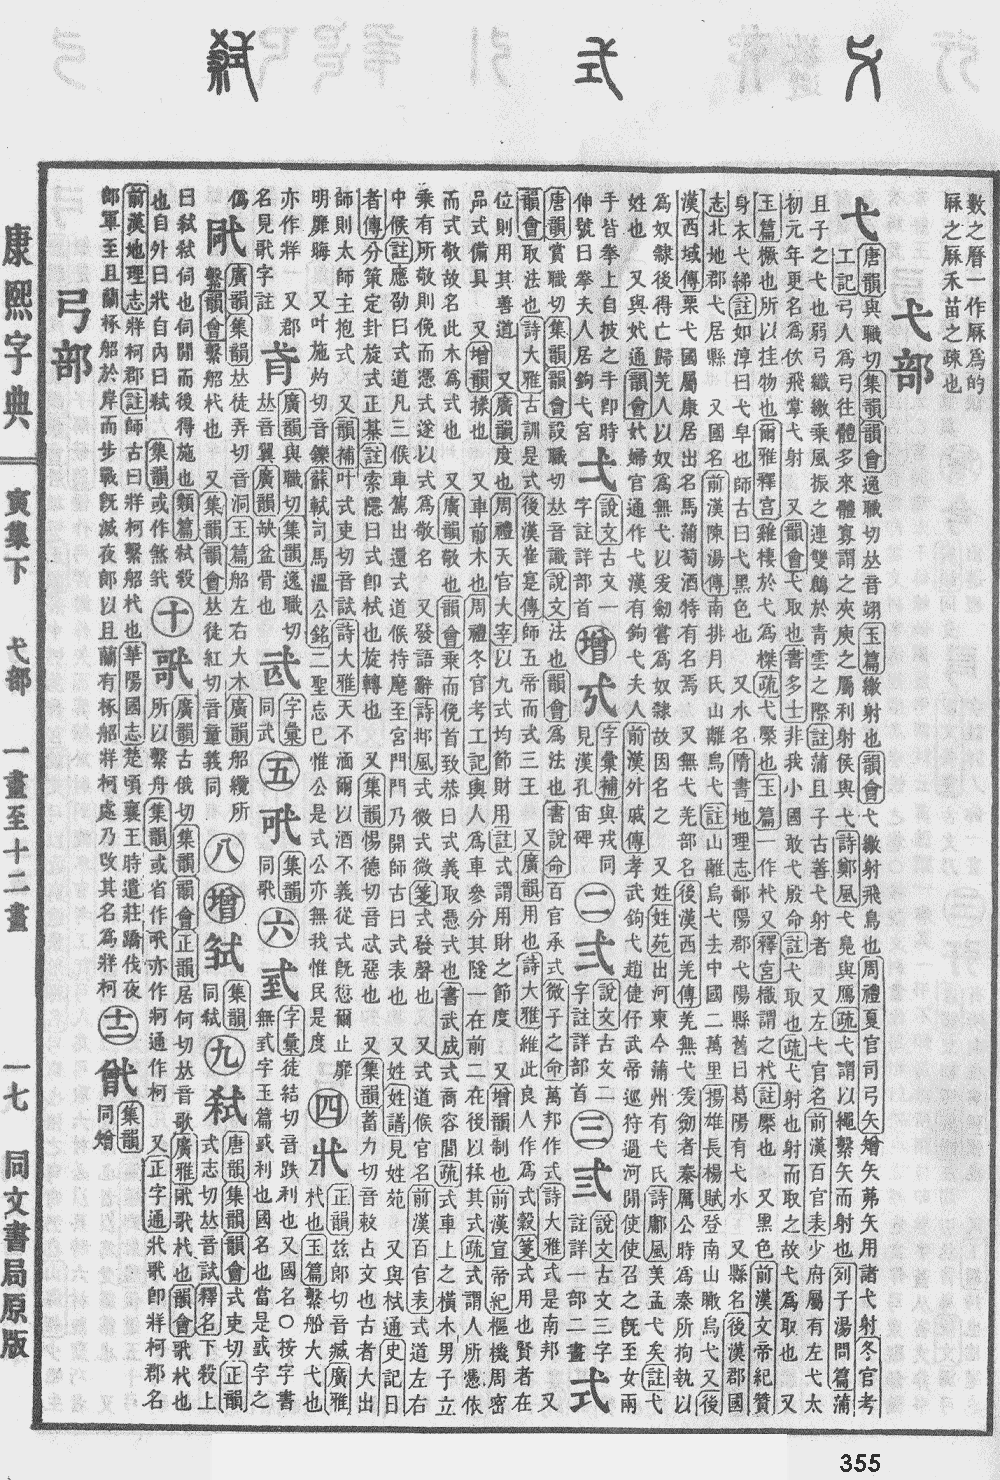 弋
式
弒
數之曆一作厤爲的
厤之厤禾苗之疎也
弋部
弋
唐韻與職切集韻韻會逸職切𠀤音翊玉篇繳射也韻會弋繳射飛鳥也周禮夏官司弓矢矰矢茀矢用諸弋射冬官考
工記弓人爲弓往體多來體寡謂之夾庾之屬利射侯與弋詩鄭風弋鳧與鴈疏弋謂以繩繫矢而射也列子湯問篇蒲
且子之弋也弱弓纖繳乘風振之連雙鶬於靑雲之際註蒲且子古善弋射者 又左弋官名前漢百官表少府屬有左弋太
初元年更名爲佽飛掌弋射 又韻會弋取也書多士非我小國敢弋殷命註弋取也疏弋射也射而取之故弋爲取也 又
玉篇橛也所以挂物也爾雅釋宮雞棲於弋爲榤疏弋橜也玉篇一作杙又釋宮樴謂之杙註橜也 又黑色前漢文帝紀贊
身衣弋綈註如淳曰弋皁也師古曰弋黑色也 又水名隋書地理志鄱陽郡弋陽縣舊曰葛陽有弋水 又縣名後漢郡國
志北地郡弋居縣 又國名前漢陳湯傳南排月氏山離烏弋註山離烏弋去中國二萬里揚雄長楊賦登南山瞰烏弋又後
漢西域傳栗弋國屬康居出名馬蒲萄酒特有名焉 又無弋羌部名後漢西羌傳羌無弋爰劒者秦厲公時爲秦所拘執以
爲奴隸後得亡歸羌人以奴爲無弋以爰劒嘗爲奴隸故因名之 又姓姓苑出河東今蒲州有弋氏詩鄘風美孟弋矣註弋
姓也 又與㚤通韻會㚤婦官通作弋漢有鉤弋夫人前漢外戚傳孝武鉤弋趙倢伃武帝巡狩過河閒使使召之旣至女兩
手皆拳上自披之手卽時
伸號曰拳夫人居鉤弋宮
弌
說文古文一
字註詳部首
增
𢎁
字彙補與戎同
見漢孔宙碑
二
弍
說文古文二
字註詳部首
三
弎
說文古文三字
註詳一部二畫
式
唐韻賞職切集韻韻會設職切𠀤音識說文法也韻會爲法也書說命百官承式微子之命萬邦作式詩大雅式是南邦 又
韻會取法也詩大雅古訓是式後漢崔寔傳師五帝而式三王 又廣韻用也詩大雅維此良人作爲式穀箋式用也賢者在
位則用其善道 又廣韻度也周禮天官大宰以九式均節財用註式謂用財之節度 又增韻制也前漢宣帝紀樞機周密
品式備具 又增韻揉也 又車前木也周禮冬官考工記輿人爲車參分其隧一在前二在後以揉其式疏式謂人所憑依
而式敬故名此木爲式也 又廣韻敬也韻會乘而俛首致恭曰式義取憑式也書武成式商容閭疏式車上之橫木男子立
乘有所敬則俛而憑式遂以式爲敬名 又發語辭詩邶風式微式微箋式發聲也 又式道候官名前漢百官表式道左右
中候註應劭曰式道凡三候車駕出還式道候持麾至宮門門乃開師古曰式表也 又姓姓譜見姓苑 又與栻通史記日
者傳分策定卦旋式正棊註索隱曰式卽栻也旋轉也 又集韻惕德切音忒惡也 又集韻蓄力切音敕占文也古者大出
師則太師主抱式 又韻補叶式吏切音試詩大雅天不湎爾以酒不義從式旣愆爾止靡
明靡晦 又叶施灼切音鑠蘇軾司馬溫公銘二聖忘己惟公是式公亦無我惟民是度
四
𢍿
正韻茲郎切音臧廣雅
杙也玉篇繫船大弋也
亦作牂 又郡
名見㢦字註
𢎂
廣韻與職切集韻逸職切
𠀤音翼廣韻缺盆骨也
武
字彙
同武
五
𢎆
集韻
同㢦
六
㢤
字彙徒結切音跌利也又國名○按字書
無㢤字玉篇㦶利也國名也當是㦶字之
譌
𢎄
廣韻集韻𠀤徒弄切音洞玉篇船左右大木廣韻船纜所
繫韻會繫船杙也 又集韻韻會𠀤徒紅切音童義同
八
增
𢎋
集韻
同弒
九
弒
唐韻集韻韻會式吏切正韻
式志切𠀤音試釋名下殺上
曰弒弒伺也伺閒而後得施也類篇弒殺
也自外曰戕自內曰弒 集韻或作煞㢤
十
㢦
廣韻古俄切集韻韻會正韻居何切𠀤音歌廣雅㢦杙也韻會㢦杙也
所以繫舟集韻或省作𢎆亦作牁通作柯 又正字通牂㢦卽牂柯郡名
前漢地理志牂柯郡註師古曰牂柯繫船杙也華陽國志楚頃襄王時遣莊蹻伐夜
郞軍至且蘭椓船於岸而步戰旣滅夜郞以且蘭有椓船牂柯處乃改其名爲牂柯
十二
𢎐
集韻
同矰
弓部
康熙字典
寅集下
弋部
一畫至十二畫
一七
同文書局原版
355